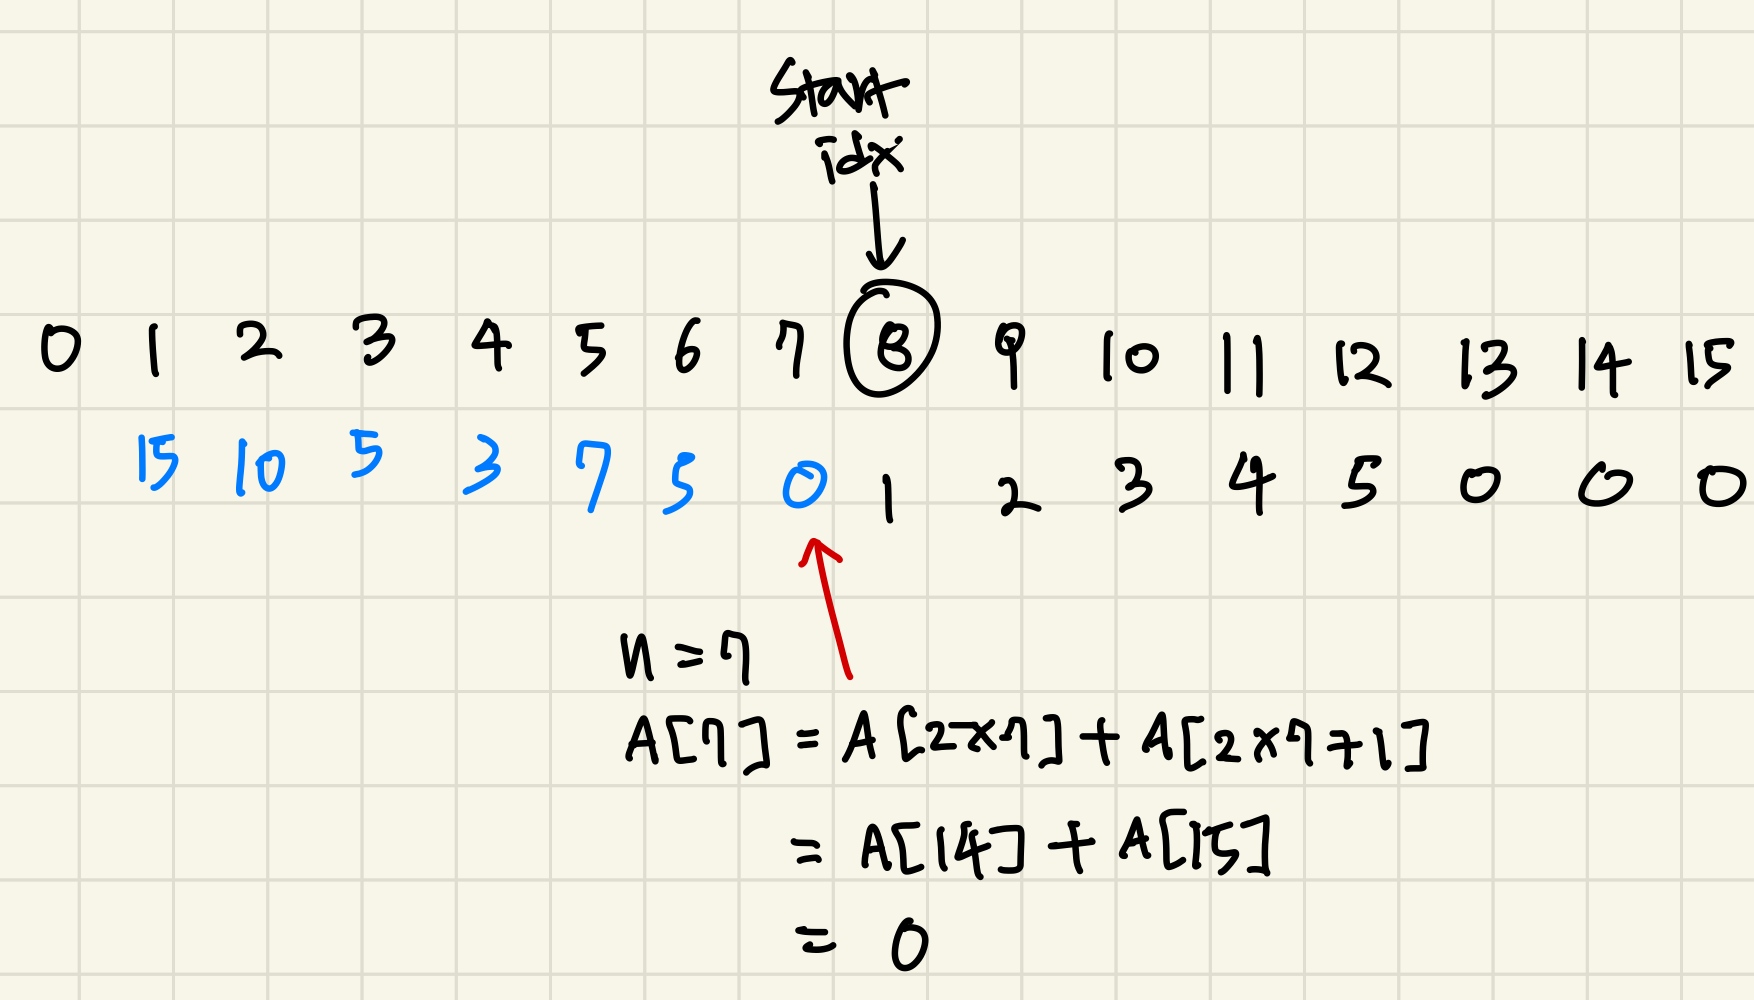 Start
idx
0 1 2 3 4 5 6 7 8 9 10 11 12 13 14 15
15 10 5 3 7 5 0 1 2 3 4 5 0 0 0
n = 7
A[7] = A[2×7] + A[2×7+1]
= A[14] + A[15]
= 0